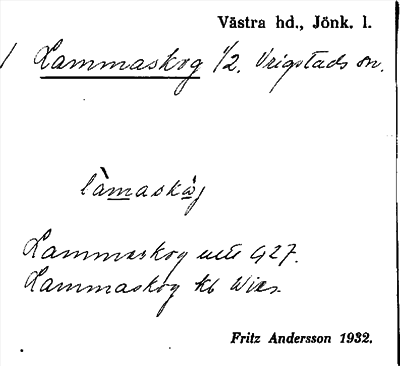 Västra hd., Jönk. l.
Lammaskog 1/2. Vrigstads sn.
làmaskåg
Lammaskog
Lammaskog kb
Fritz Andersson 1932.